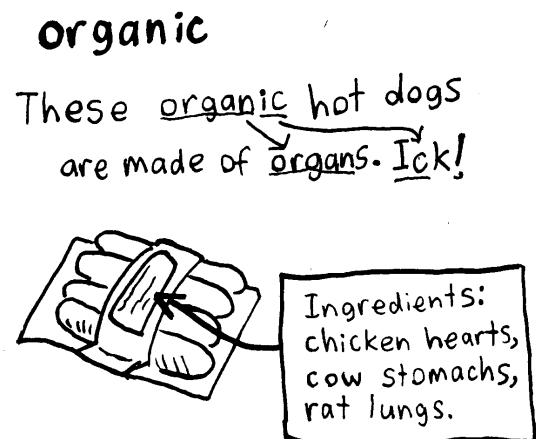 organic
These organic hot dogs
are made of organs. Ick!
Ingredients:
chicken hearts,
cow stomachs,
rat lungs.